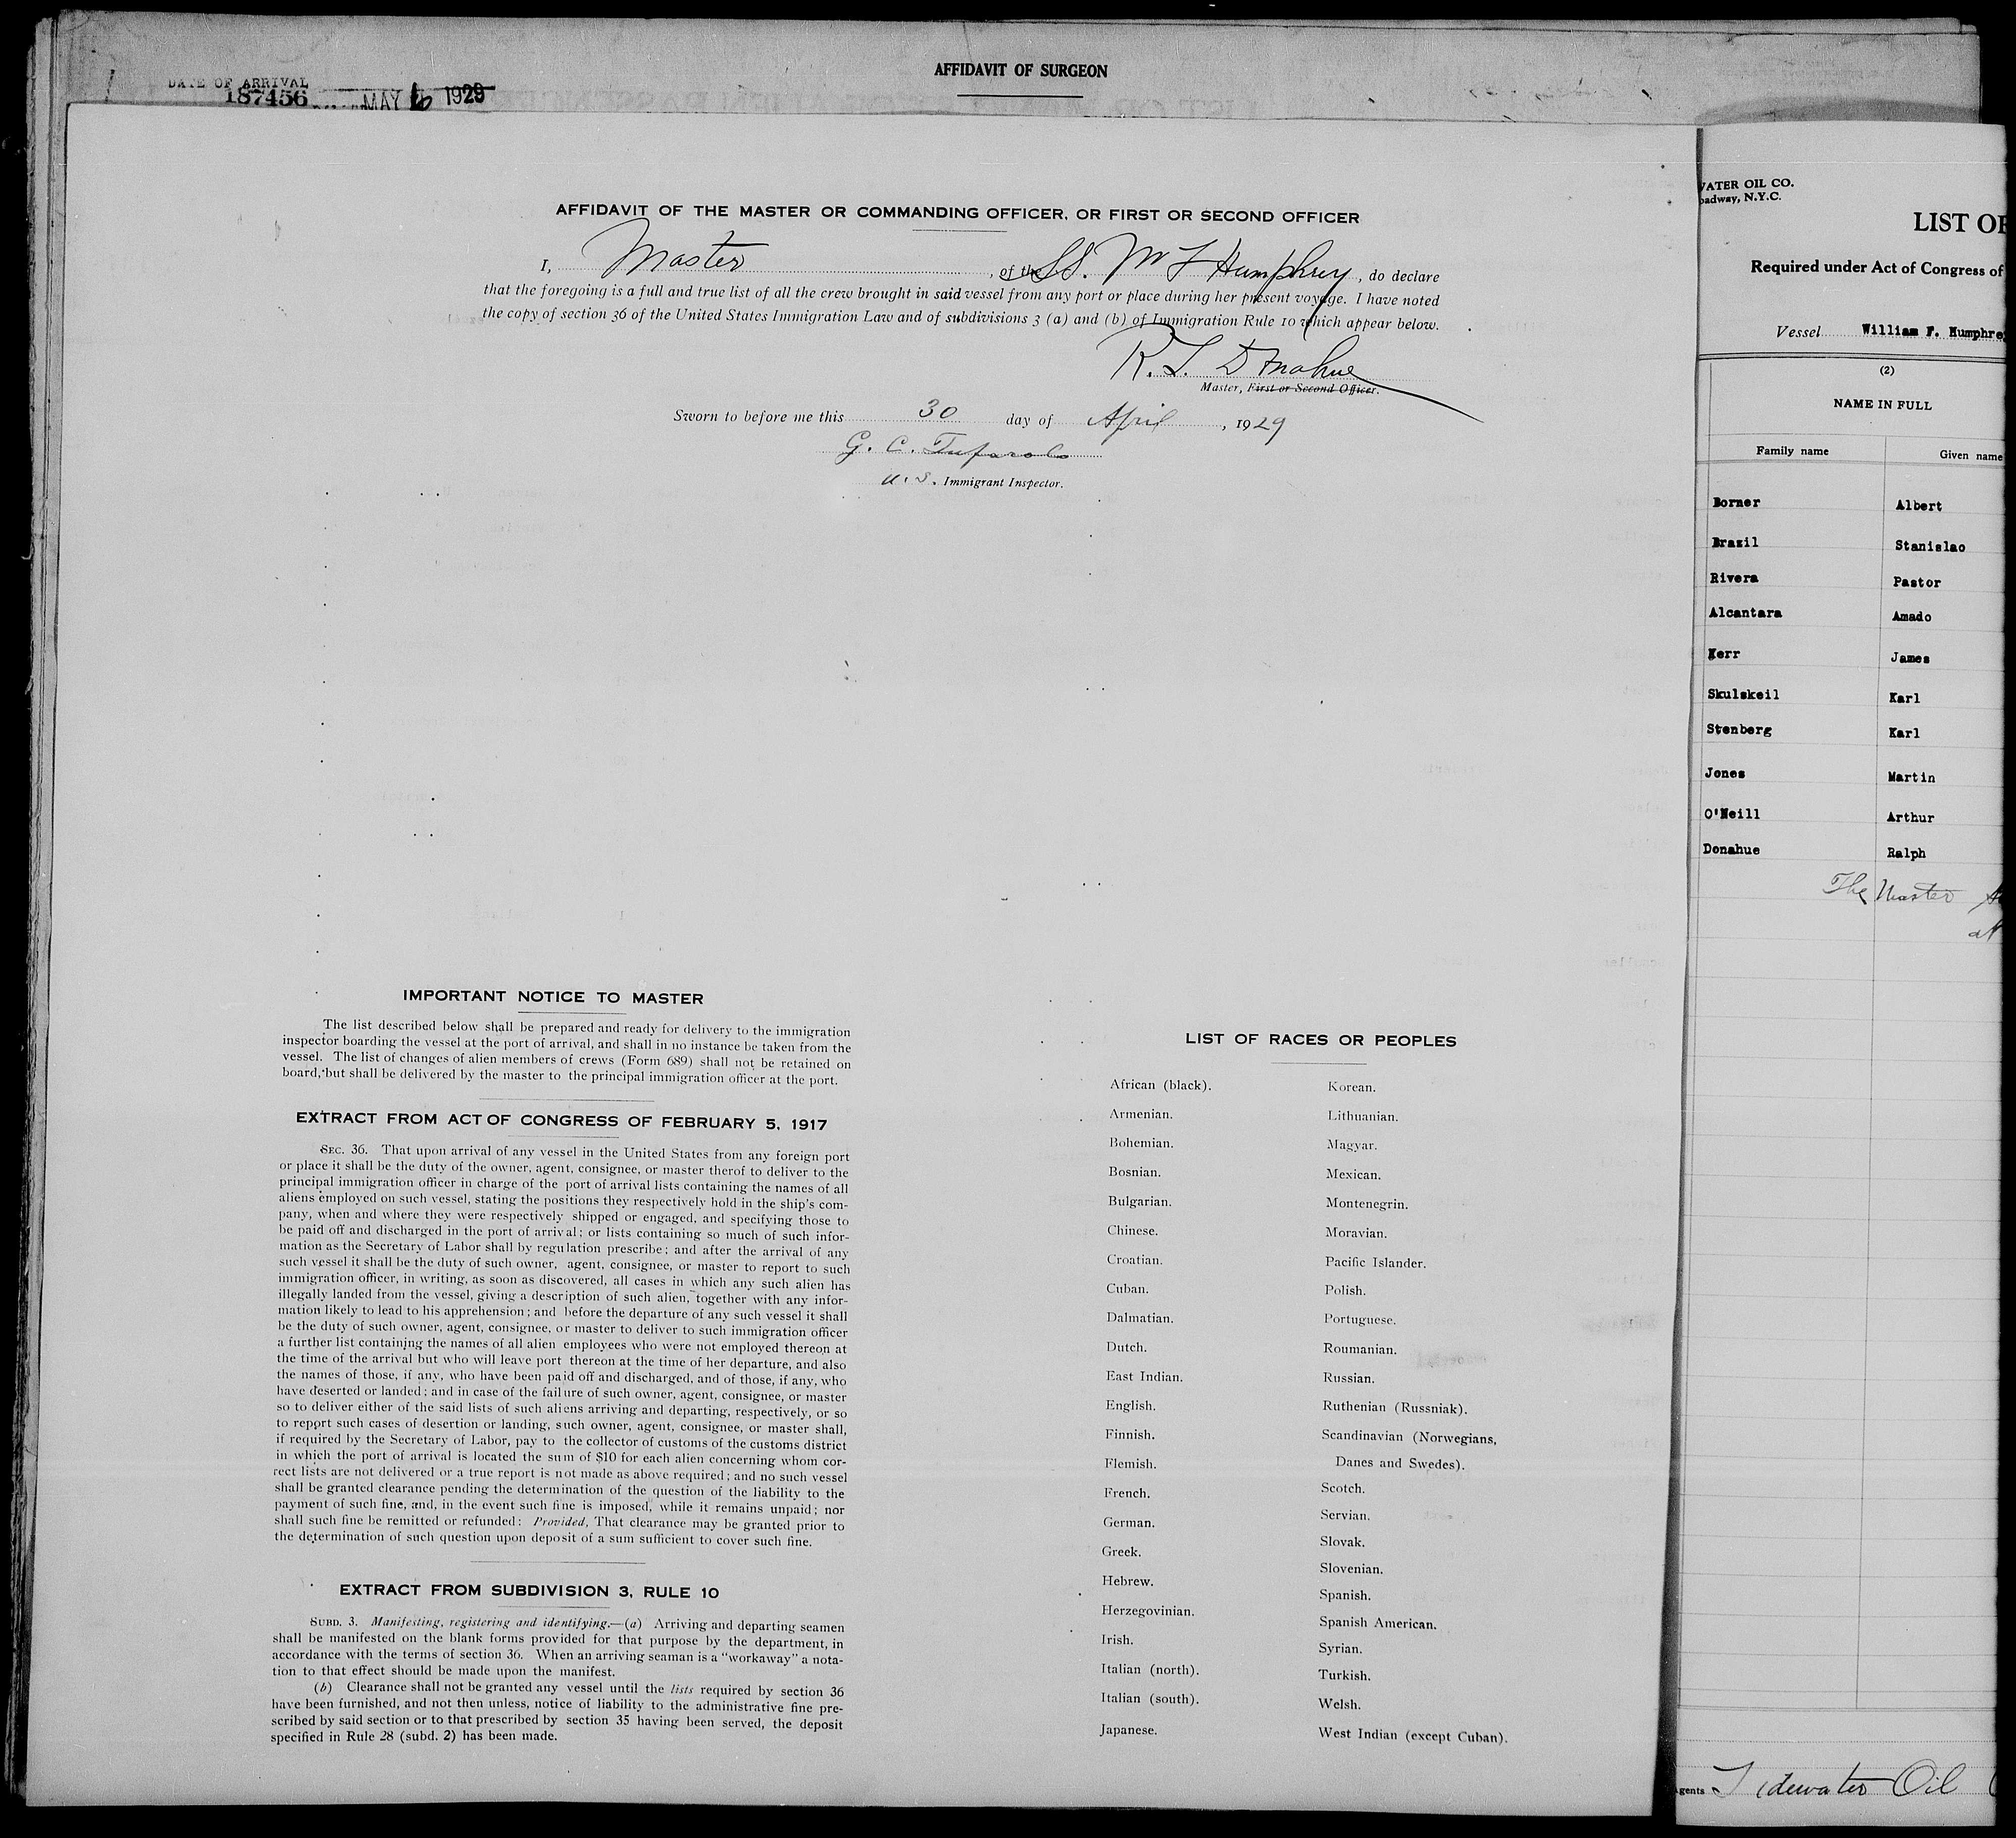 AFFIDAVIT OF SURGEON
DATE OF ARRIVAL
187456 MAY 6 1929
AFFIDAVIT OF THE MASTER OR COMMANDING OFFICER, OR FIRST OR SECOND OFFICER
I, Master, of the SS. Wm F Humphrey, do declare
that the foregoing is a full and true list of all the crew brought in said vessel from any port or place during her present voyage. I have noted
the copy of section 36 of the United States Immigration Law and of subdivisions 3 (a) and (b) of Immigration Rule 10 which appear below.
R. L. Donahue
Master, First or Second Officer.
Sworn to before me this 30 day of April, 1929
G. C.
U.S. Immigrant Inspector.
IMPORTANT NOTICE TO MASTER
The list described below shall be prepared and ready for delivery to the immigration
inspector boarding the vessel at the port of arrival, and shall in no instance be taken from the
vessel. The list of changes of alien members of crews (Form 689) shall not be retained on
board, but shall be delivered by the master to the principal immigration officer at the port.
EXTRACT FROM ACT OF CONGRESS OF FEBRUARY 5, 1917
SEC. 36. That upon arrival of any vessel in the United States from any foreign port
or place it shall be the duty of the owner, agent, consignee, or master therof to deliver to the
principal immigration officer in charge of the port of arrival lists containing the names of all
aliens employed on such vessel, stating the positions they respectively hold in the ship's com-
pany, when and where they were respectively shipped or engaged, and specifying those to
be paid off and discharged in the port of arrival; or lists containing so much of such infor-
mation as the Secretary of Labor shall by regulation prescribe; and after the arrival of any
such vessel it shall be the duty of such owner, agent, consignee, or master to report to such
immigration officer, in writing, as soon as discovered, all cases in which any such alien has
illegally landed from the vessel, giving a description of such alien, together with any infor-
mation likely to lead to his apprehension; and before the departure of any such vessel it shall
be the duty of such owner, agent, consignee, or master to deliver to such immigration officer
a further list containing the names of all alien employees who were not employed thereon at
the time of the arrival but who will leave port thereon at the time of her departure, and also
the names of those, if any, who have been paid off and discharged, and of those, if any, who
have deserted or landed; and in case of the failure of such owner, agent, consignee, or master
so to deliver either of the said lists of such aliens arriving and departing, respectively, or so
to report such cases of desertion or landing, such owner, agent, consignee, or master shall,
if required by the Secretary of Labor, pay to the collector of customs of the customs district
in which the port of arrival is located the sum of $10 for each alien concerning whom cor-
rect lists are not delivered or a true report is not made as above required; and no such vessel
shall be granted clearance pending the determination of the question of the liability to the
payment of such fine, and, in the event such fine is imposed, while it remains unpaid; nor
shall such fine be remitted or refunded: Provided, That clearance may be granted prior to
the determination of such question upon deposit of a sum sufficient to cover such fine.
EXTRACT FROM SUBDIVISION 3, RULE 10
SUBD. 3. Manifesting, registering and identifying.—(a) Arriving and departing seamen
shall be manifested on the blank forms provided for that purpose by the department, in
accordance with the terms of section 36. When an arriving seaman is a "workaway" a nota-
tion to that effect should be made upon the manifest.
(b) Clearance shall not be granted any vessel until the lists required by section 36
have been furnished, and not then unless, notice of liability to the administrative fine pre-
scribed by said section or to that prescribed by section 35 having been served, the deposit
specified in Rule 28 (subd. 2) has been made.
LIST OF RACES OR PEOPLES
African (black).
Armenian.
Bohemian.
Bosnian.
Bulgarian.
Chinese.
Croatian.
Cuban.
Dalmatian.
Dutch.
East Indian.
English.
Finnish.
Flemish.
French.
German.
Greek.
Hebrew.
Herzegovinian.
Irish.
Italian (north).
Italian (south).
Japanese.
Korean.
Lithuanian.
Magyar.
Mexican.
Montenegrin.
Moravian.
Pacific Islander.
Polish.
Portuguese.
Roumanian.
Russian.
Ruthenian (Russniak).
Scandinavian (Norwegians,
Danes and Swedes).
Scotch.
Servian.
Slovak.
Slovenian.
Spanish.
Spanish American.
Syrian.
Turkish.
Welsh.
West Indian (except Cuban).
WATER OIL CO.
oadway, N.Y.C.
LIST OF
Required under Act of Congress of
Vessel William F. Humphre
(2)
NAME IN FULL
Family name Given name
Borner Albert
Brazil Stanislao
Rivera Pastor
Alcantara Amado
Kerr James
Skulskeil Karl
Stenberg Karl
Jones Martin
O'Neill Arthur
Donahue Ralph
The Master
at
gents Tidewater Oil C